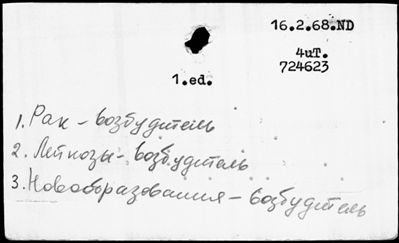 16.2.68.ND
4uT.
724623
1.ed.
1. Рак - возбудитель
2. Лейкозы - возбудитель
3. Новообразования - возбудитель